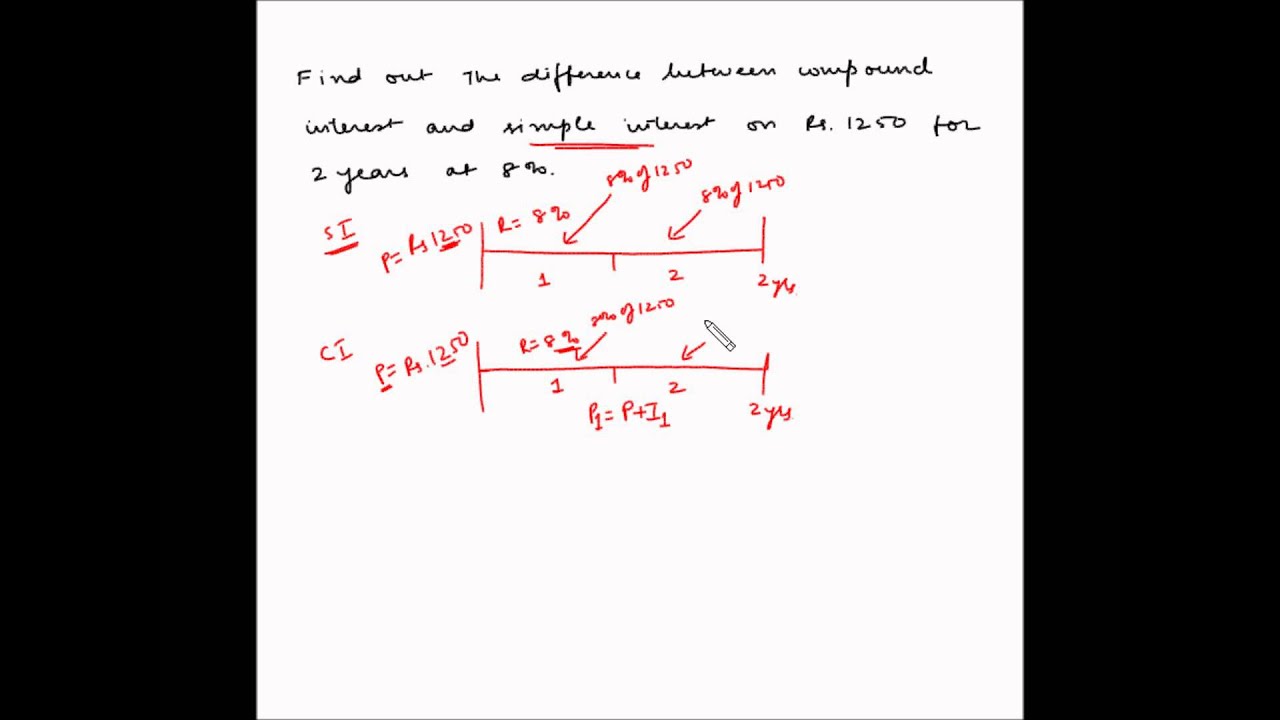 Find out the difference between compound
interest and simple interest on Rs. 1250 for
2 years at 8%.
8% of 1250
8% of 1250
SI P= Rs 1250 R= 8%
1 2 2 yrs
8% of 1250
CI P= Rs. 1250 R= 8%
1 2 2 yrs
P1= P+I1